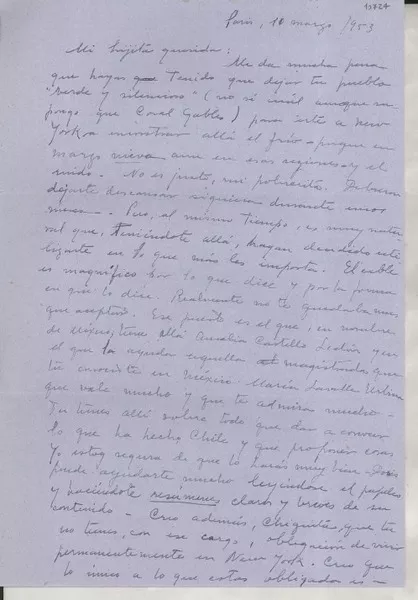 13727
Paris, 10 marzo 1953
Mi hijita querida:
Me da mucha pena
que hayas Tenido que dejar tu pueblo
"verde y silencioso" (no sé cuál aunque su-
pongo que Coral Gables) para irte a New
York a encontrar allá el frío - porque en
marzo nieva aun en esas regiones - y el
ruido. - No es justo, mi pobrecita. Debieran
dejarte descansar siquiera durante unos
meses. - Pero, al mismo Tiempo, es muy natu-
ral que, Teniéndote allá, hayan decidido uti-
lizarte en lo que más les importa. El cable
es magnífico por lo que dice y por la forma
en que lo dice. Realmente no te quedaba mas
que aceptar. Ese puesto es el que, en nombre
de México, tiene allá Amalia Castillo Ledón y en
el que la ayudar aquella magistrada que
tú conociste en México María Lavalle Urbina
que vale mucho y que te admira mucho. -
Tu tienes allí sobre todo que dar a conocer
lo que ha hecho Chile y que proponer cosas.
Yo estoy segura de que lo harás muy bien - Doris
puede ayudarte mucho leyéndose el papeleo
y haciéndote resúmenes claros y breves de su
contenido. - Creo además, Chiquita, que tu
no tienes, con ese cargo, obligación de vivir
permanentemente en New York. Creo que
lo único a lo que estás obligada es -